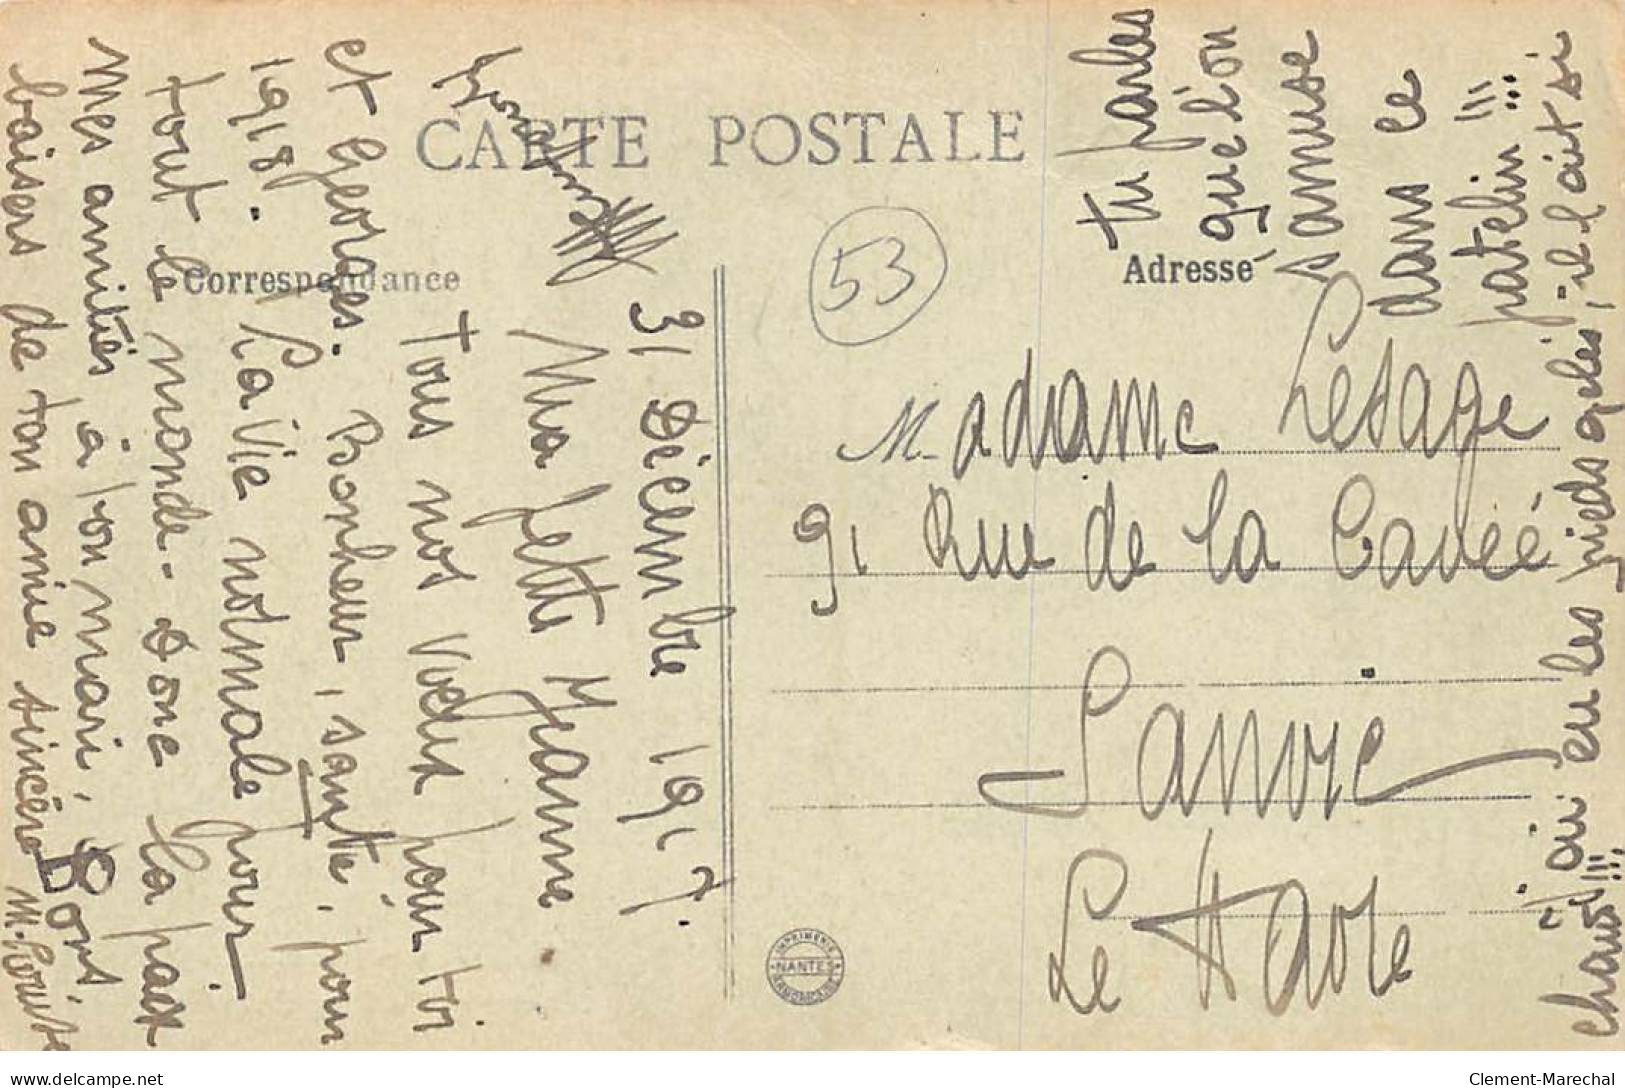 CARTE POSTALE
Correspondance
Adresse
53
31 Décembre 1917.
Ma petite Jeanne
Tous nos vœux pour toi
et Georges. Bonheur, santé, pour
1918. La vie normale pour
tout le monde - Donc la paix
Mes amitiés à ton mari, Bons
baisers de ton amie sincère M. Louise
Madame Lesage
91 Rue de la Cavée
Sanvic
Le Havre
tu parles
que l'on
s'amuse
dans ce
patelin !!!
j'ai eu les pieds gelés, il fait si
chaud !!!
IMPRIMERIE
NANTES
ARMORICAINE
Clement-Marechal